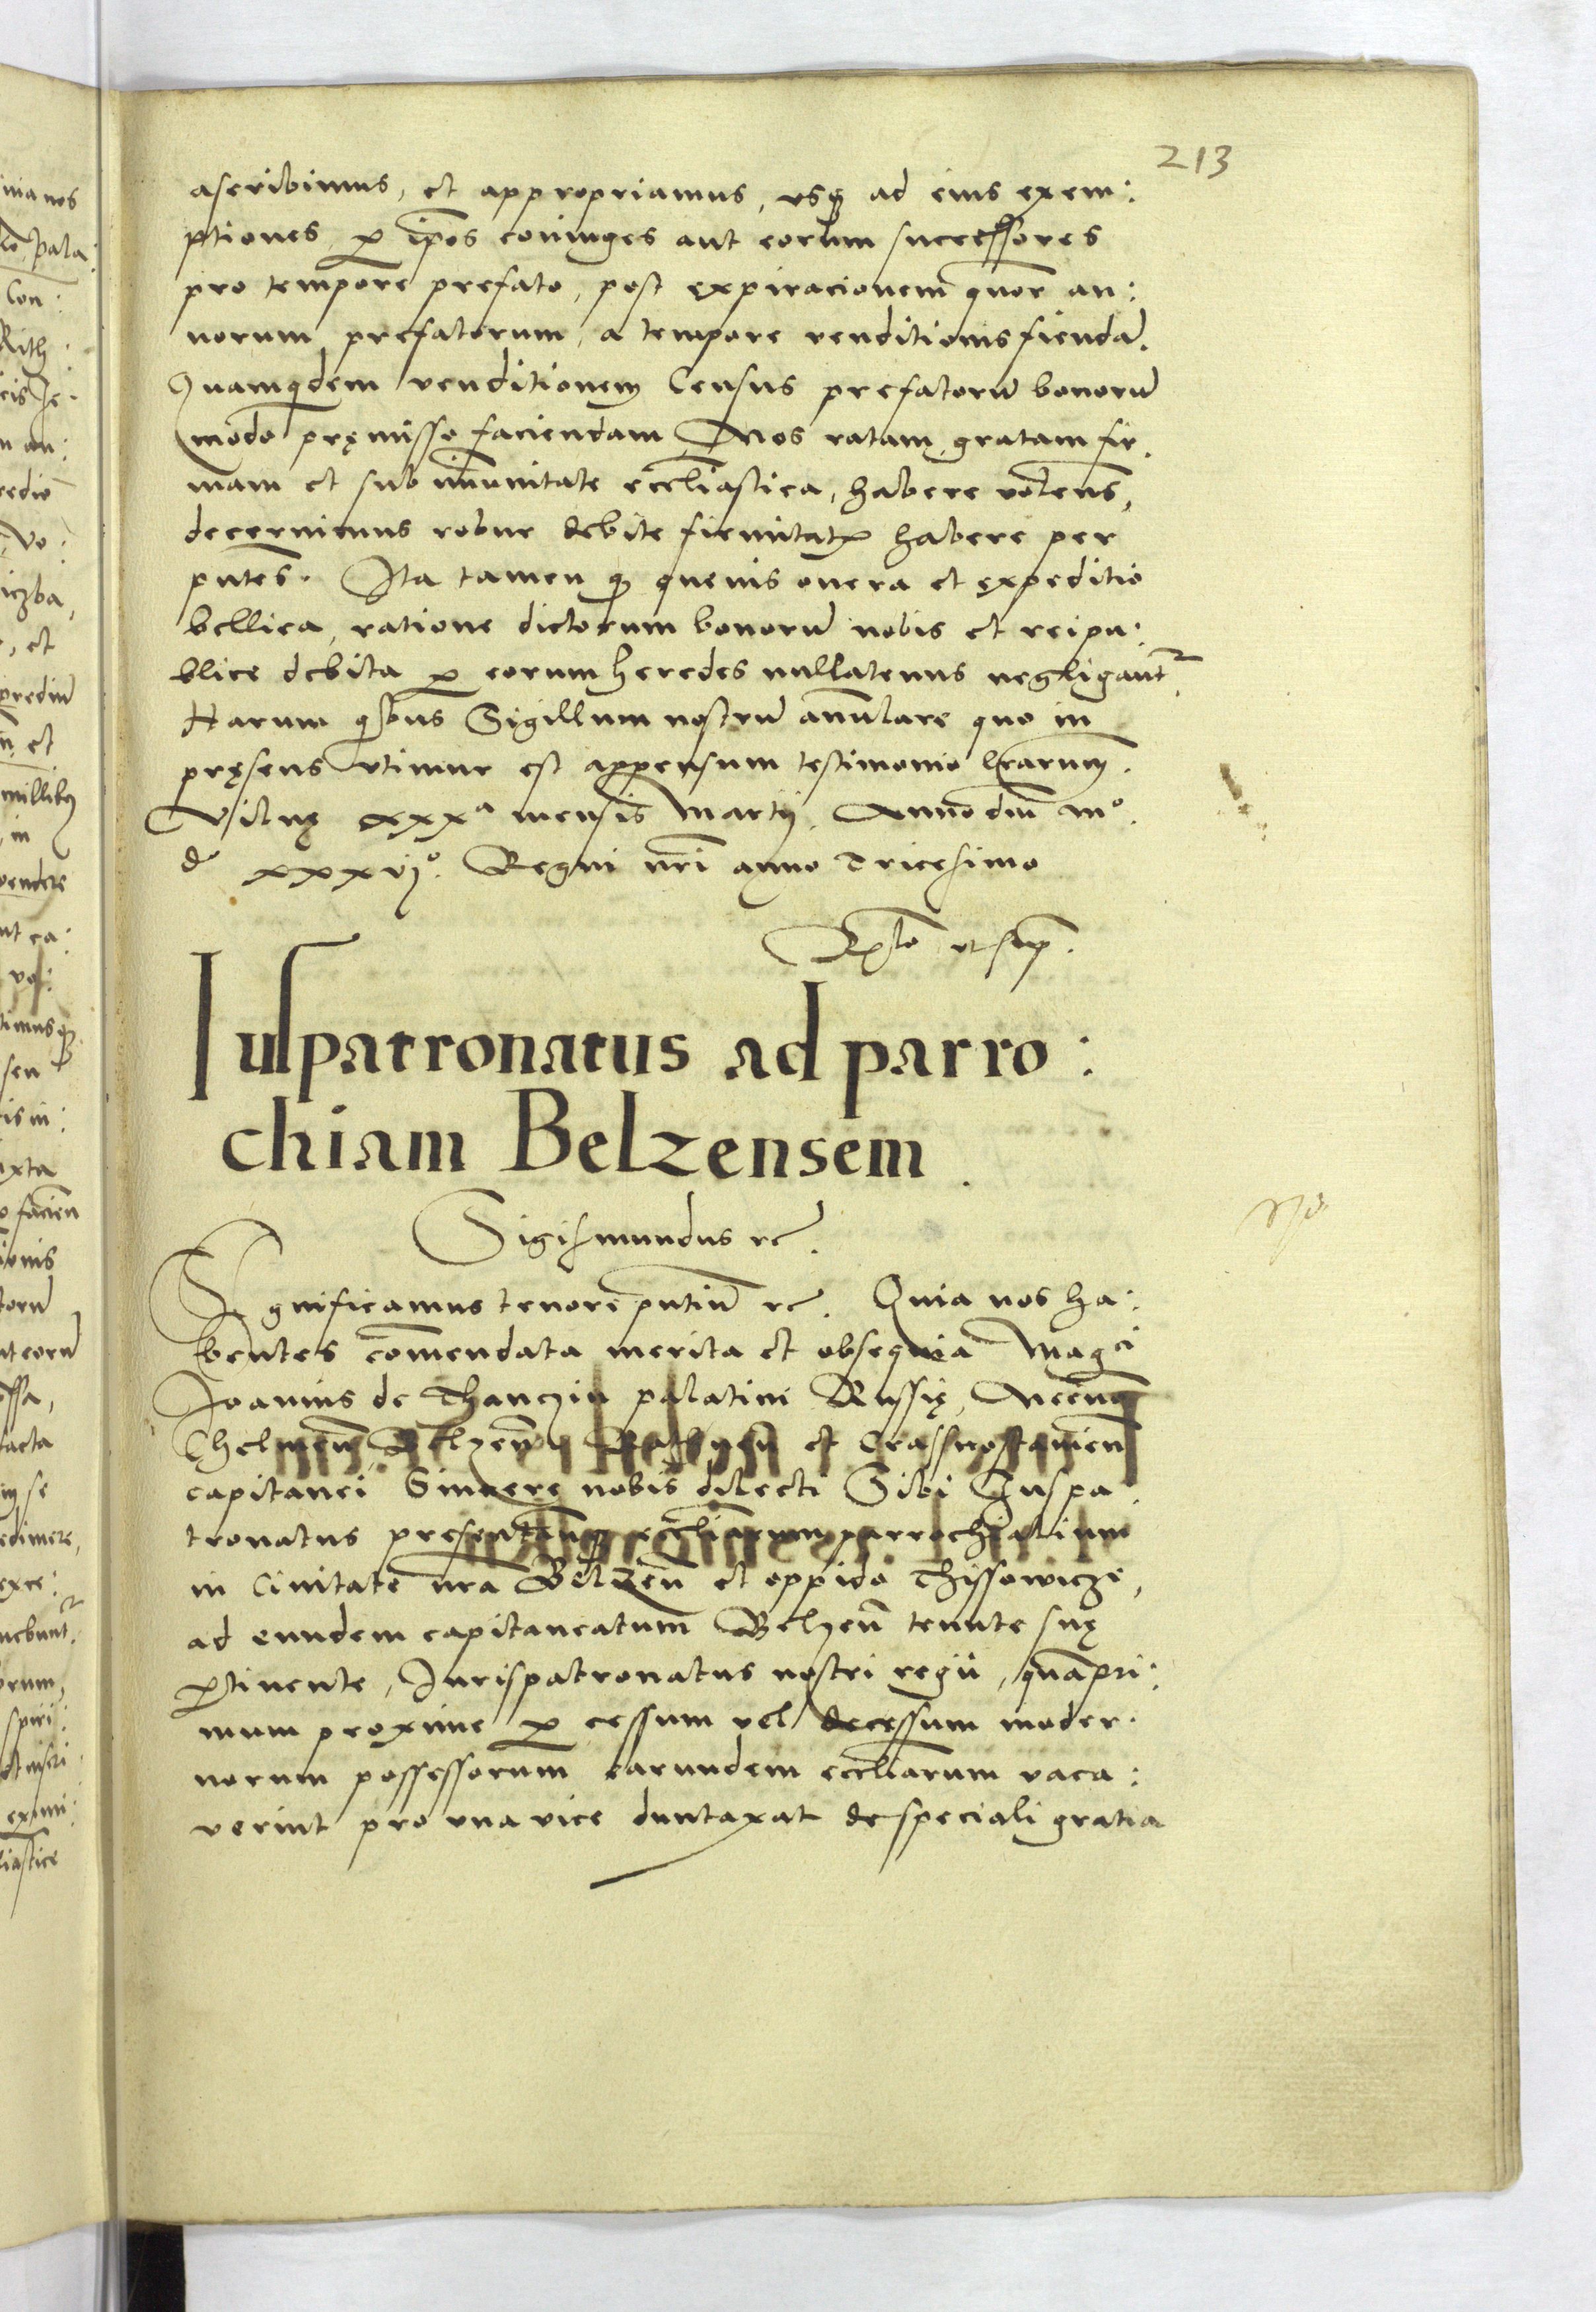 213
ascribimus, et appropriamus, vsq ad eius exem:
ptiones p ipos coniuges aut eorum successores
pro tempore prefato, post expiracionem quor an:
norum prefatorum, a tempore venditionis fienda.
Quamqdem venditionem Census prefatoru bonoru
modo pręmisso faciendam Nos ratam gratam fir.
mam et sub imunitate eccliastica, habere volens,
decernimus robur debite firmitatis habere per
pntes. Ita tamen q queuis onera et expeditio
bellica, ratione dictorum bonoru nobis et reipu:
blice debita p eorum heredes nullatenus negligant.
Harum qbus Sigillum nostru anulare quo in
pręsens vtimur est appensum testimonio lrarum.
Vilnę xxxa mensis Martij. Anno dni mo.
d xxxvjo. Regni nri anno Tricesimo
Relo vt sup.
Iuspatronatus ad parro:
chiam Belzensem.
Sigismundus rc.
Significamus tenore pntiu rc. Quia nos ha:
bentes comendata merita et obsequia Magci
Joannis de Thanczin palatini Russię, Necnon
Chelmen Belzen et Crassnostauien
capitanei Sincere nobis dilecti Sibi Iuspa
tronatus presentanq eccliarum parrochialium
in Ciuitate nra Belzen et oppido Thissowicze,
ad eundem capitaneatum Belzen tenute suę
ptinente, Jurispatronatus nostri regij, quapri:
mum proxime p cessum vel decessum moder.
norum possessorum earundem eccliarum vaca:
verint pro vna vice duntaxat de speciali gratia